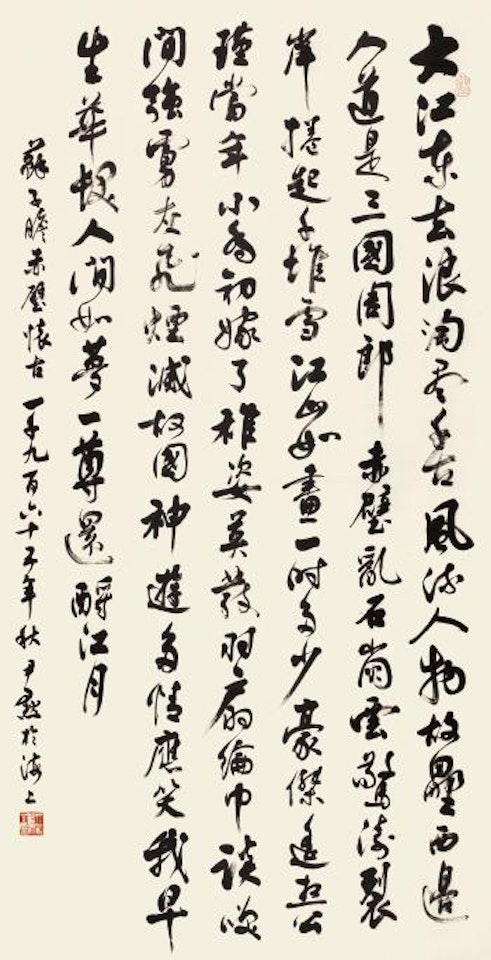 大江東去浪淘盡千古風流人物故壘西邊
人道是三國周郎赤壁亂石崩雲驚濤裂
岸捲起千堆雪江山如畫一時多少豪傑遙想公
瑾當年小喬初嫁了雄姿英發羽扇綸巾談笑
間強虜灰飛煙滅故國神遊多情應笑我早
生華髮人間如夢一尊還酹江月
蘇子瞻赤壁懷古一千九百六十五年秋尹默於海上